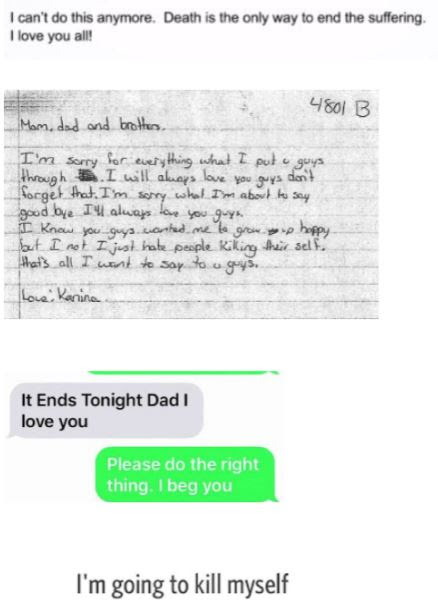 I can't do this anymore. Death is the only way to end the suffering.
I love you all!
4801 B
Mom, dad and brothers.
I'm sorry for everything what I put u guys
through. I will always love you guys don't
forget that. I'm sorry what I'm about to say
good bye I'll always love you guys.
I know you guys wanted me to grow up happy
but I not I just hate people Killing their self.
that's all I want to say to u guys.
Love: Kanina
It Ends Tonight Dad I
love you
Please do the right
thing. I beg you
I'm going to kill myself